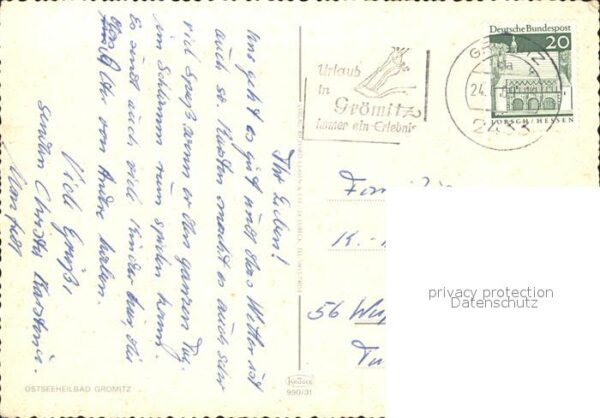 Ihr Lieben!
Uns geht es gut und das Wetter ist
auch so. Karsten macht es auch sehr
viel Spaß wenn er den ganzen Tag
im Schlamm rum spielen kann.
Es sind auch viele Kinder hier, die
das Alter von Andre haben.
Viele Grüße,
senden Christa Karsten u.
Manfred
OSTSEEHEILBAD GRÖMITZ
Urlaub
in
Grömitz
immer ein Erlebnis
GRÖMITZ
da
24.
2433
Deutsche Bundespost
20
LORSCH/HESSEN
K.-
56 Wup
privacy protection
Datenschutz
Krüger
990/31